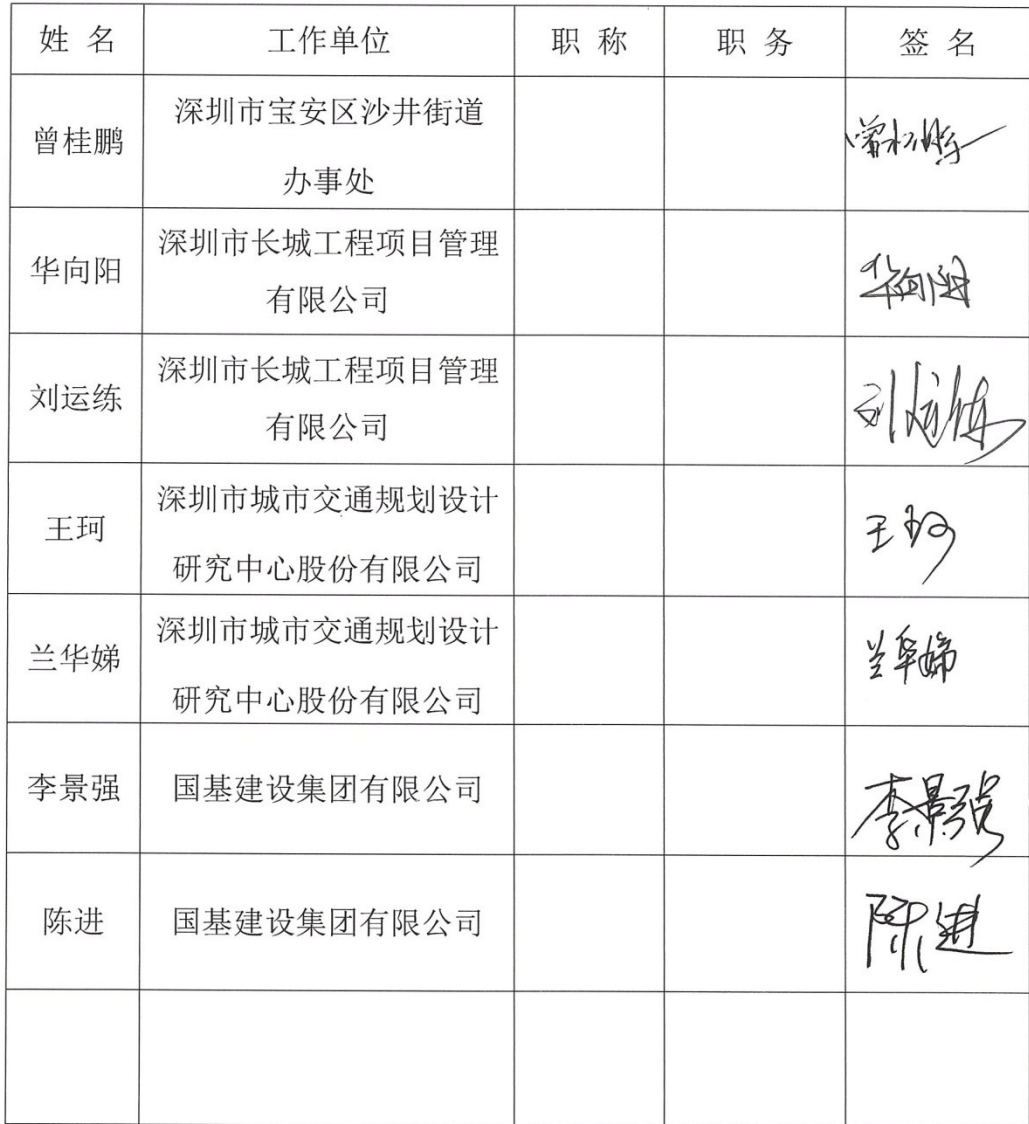 姓 名 工作单位 职 称 职 务 签 名
曾桂鹏 深圳市宝安区沙井街道
办事处 曾桂鹏
华向阳 深圳市长城工程项目管理
有限公司 华向阳
刘运练 深圳市长城工程项目管理
有限公司 刘运练
王珂 深圳市城市交通规划设计
研究中心股份有限公司 王珂
兰华娣 深圳市城市交通规划设计
研究中心股份有限公司 兰华娣
李景强 国基建设集团有限公司 李景强
陈进 国基建设集团有限公司 陈进